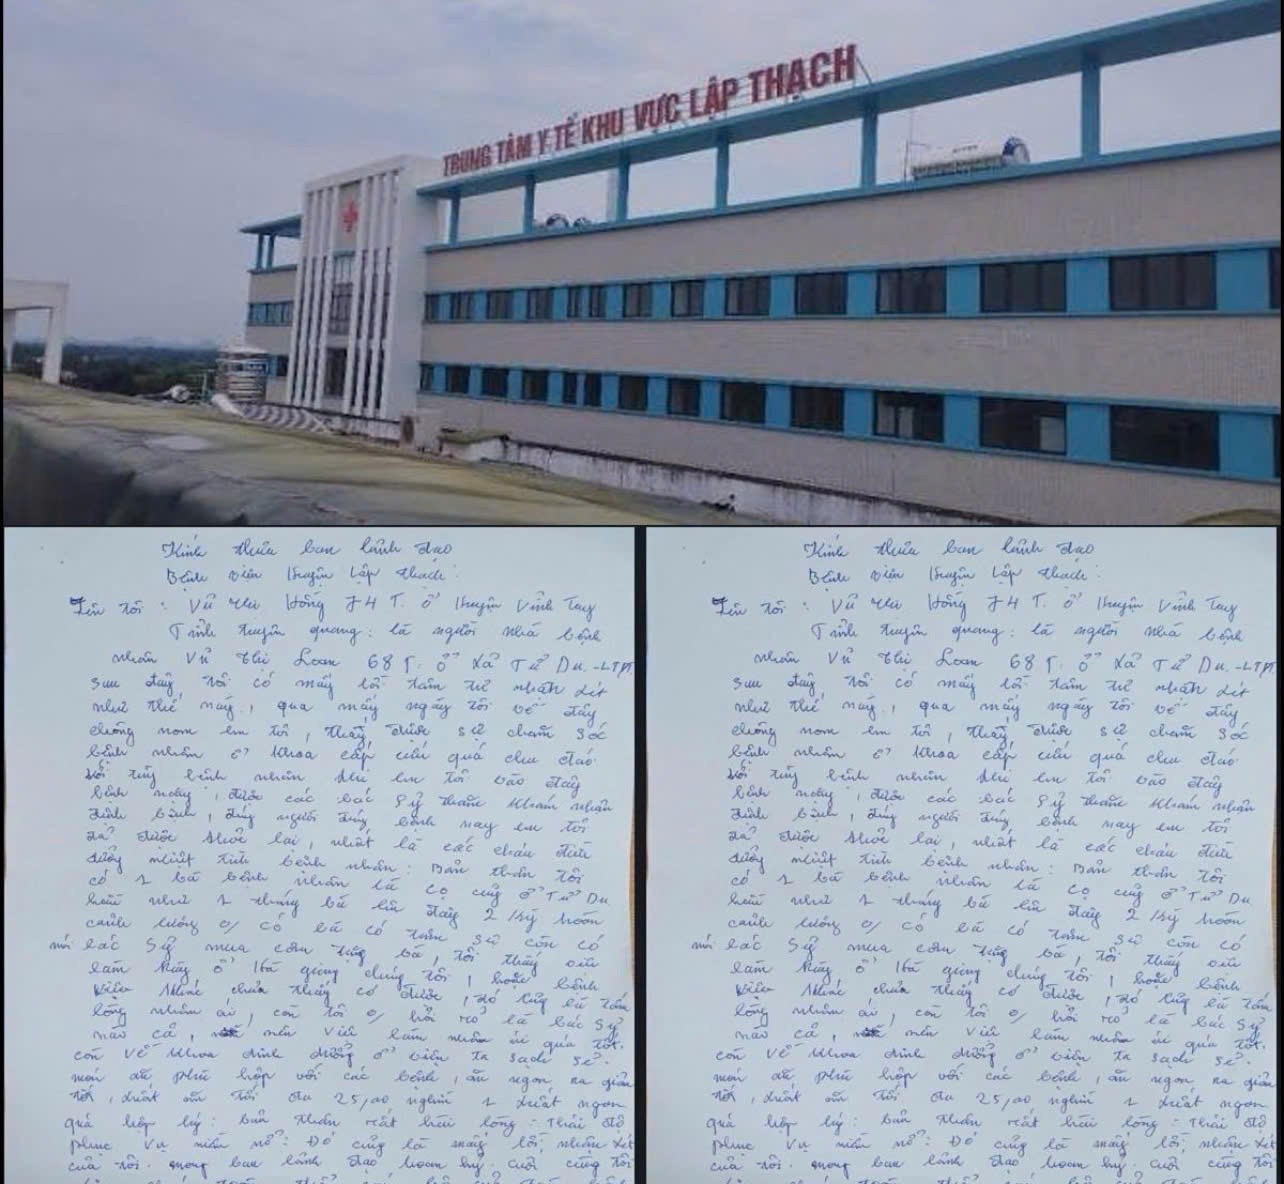 TRUNG TÂM Y TẾ KHU VỰC LẬP THẠCH
Kính thưa ban lãnh đạo
Bệnh viện Huyện Lập Thạch:
Tên tôi: Vũ Thị Hồng 74 T. ở Huyện Vĩnh Tuy
Tỉnh Tuyên quang: là người nhà bệnh
nhân Vũ Thị Loan 68 T. ở xã Tử Du.-LTPT
sau đây tôi có mấy lời tâm tư nhận xét
như thế này, qua mấy ngày tôi về đây
chông nom em tôi, thấy được sự chăm sóc
bệnh nhân ở khoa cấp cứu quá chu đáo
với từng bệnh nhân khi em tôi vào đây
bệnh nặng, được các bác sỹ thăm khám nhận
định bệnh, đúng người đúng bệnh nay em tôi
đã được khỏe lại, nhất là các cháu điều
dưỡng nhiệt tình bệnh nhân: Bản thân tôi
có 1 bà bệnh nhân là cọ cùng ở Tử Du
hầu như 1 tháng bà lên đây 2 kỳ hoàn
cảnh lương o/ có bà có tâm sự còn có
mới bác sỹ mua cơm từng bà, tôi thấy điều
làm này ở Hà giang chúng tôi, hoặc bệnh
viện khác chưa thấy có được, đó cũng là tấm
lòng nhân ái, còn tôi o/ hỏi rõ là bác sỹ
nào cả, nên việc làm nhân ái quá tốt.
còn về khoa dinh dưỡng ở viện ta sạch sẽ.
món ăn phù hợp với các bệnh, ăn ngon, ra giản
tôi, xuất ăn tối đa 25,00 nghìn 1 xuất ngon
quá hợp lý: bản thân rất hài lòng: Thái độ
phục vụ niềm nở: Đó cũng là mấy lời nhận xét
của tôi. mong ban lãnh đạo hoan hỷ. cuối cùng tôi
Kính thưa ban lãnh đạo
Bệnh viện Huyện Lập Thạch:
Tên tôi: Vũ Thị Hồng 74 T. ở Huyện Vĩnh Tuy
Tỉnh Tuyên quang: là người nhà bệnh
nhân Vũ Thị Loan 68 T. ở xã Tử Du.-LTPT
sau đây tôi có mấy lời tâm tư nhận xét
như thế này, qua mấy ngày tôi về đây
chông nom em tôi, thấy được sự chăm sóc
bệnh nhân ở khoa cấp cứu quá chu đáo
với từng bệnh nhân khi em tôi vào đây
bệnh nặng, được các bác sỹ thăm khám nhận
định bệnh, đúng người đúng bệnh nay em tôi
đã được khỏe lại, nhất là các cháu điều
dưỡng nhiệt tình bệnh nhân: Bản thân tôi
có 1 bà bệnh nhân là cọ cùng ở Tử Du
hầu như 1 tháng bà lên đây 2 kỳ hoàn
cảnh lương o/ có bà có tâm sự còn có
mới bác sỹ mua cơm từng bà, tôi thấy điều
làm này ở Hà giang chúng tôi, hoặc bệnh
viện khác chưa thấy có được, đó cũng là tấm
lòng nhân ái, còn tôi o/ hỏi rõ là bác sỹ
nào cả, nên việc làm nhân ái quá tốt.
còn về khoa dinh dưỡng ở viện ta sạch sẽ.
món ăn phù hợp với các bệnh, ăn ngon, ra giản
tôi, xuất ăn tối đa 25,00 nghìn 1 xuất ngon
quá hợp lý: bản thân rất hài lòng: Thái độ
phục vụ niềm nở: Đó cũng là mấy lời nhận xét
của tôi. mong ban lãnh đạo hoan hỷ. cuối cùng tôi